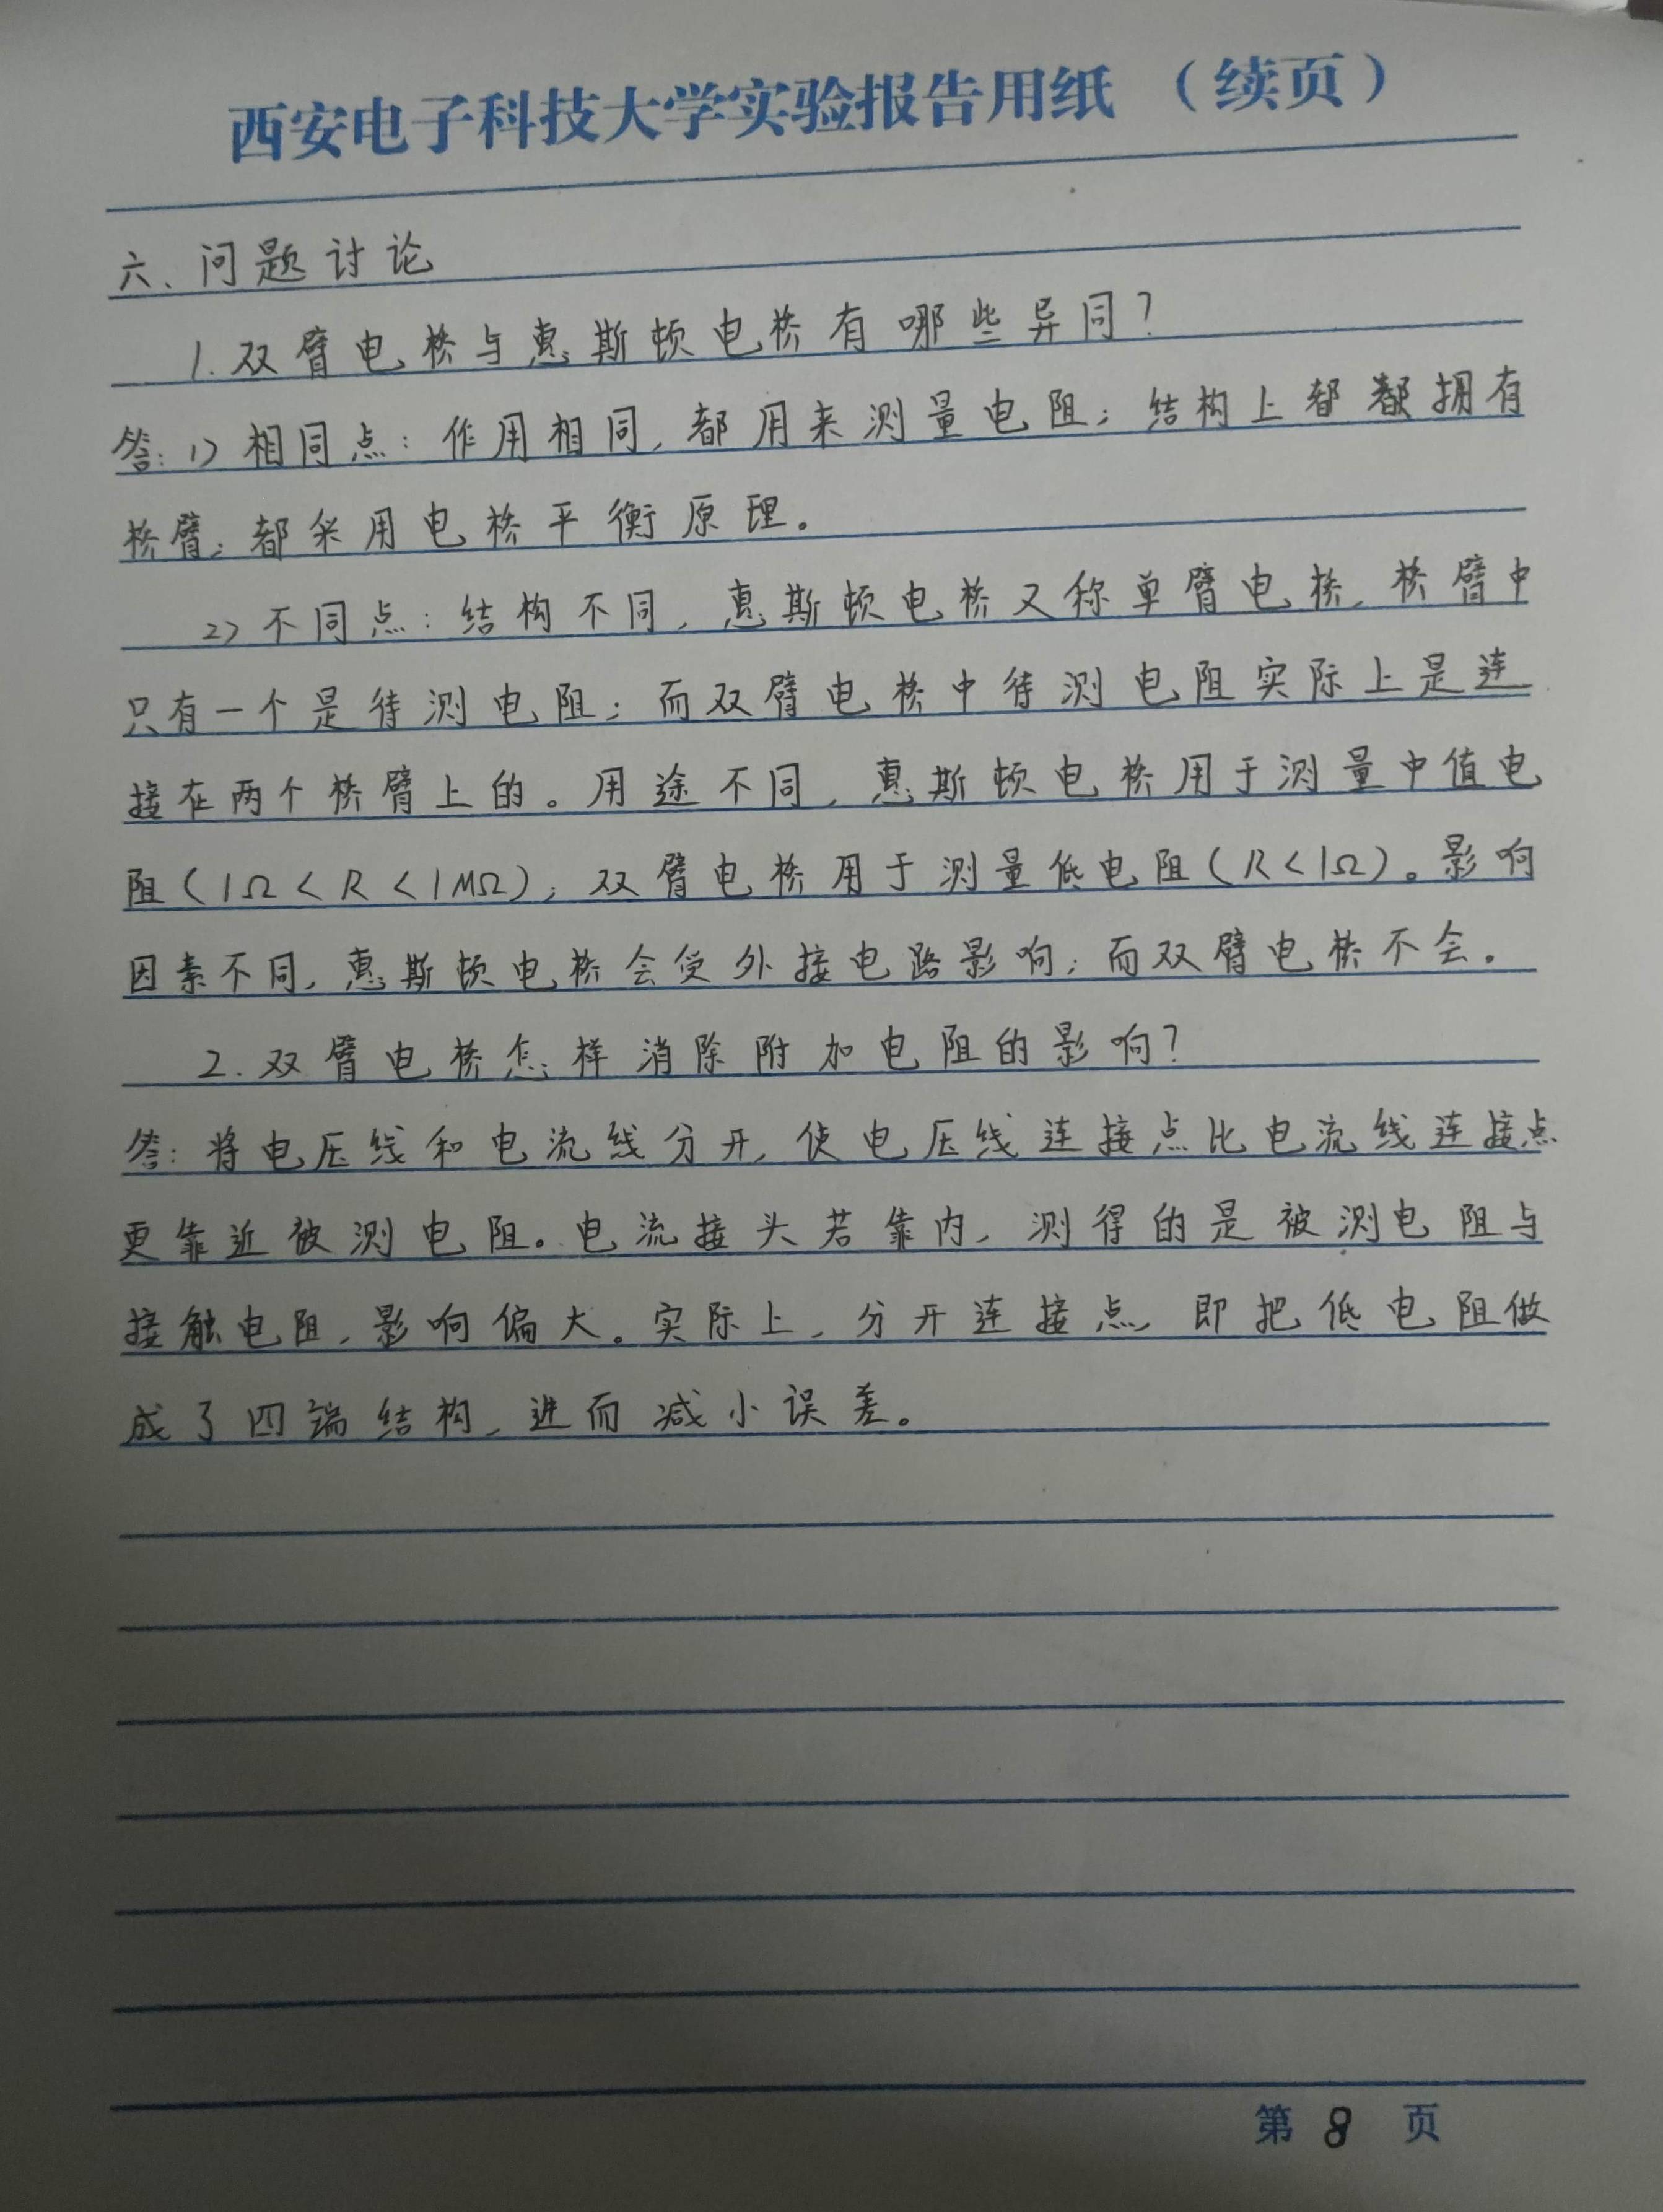 西安电子科技大学实验报告用纸（续页）
六、问题讨论
1.双臂电桥与惠斯顿电桥有哪些异同？
答：1）相同点：作用相同，都用来测量电阻；结构上都都拥有
桥臂；都采用电桥平衡原理。
2）不同点：结构不同，惠斯顿电桥又称单臂电桥，桥臂中
只有一个是待测电阻；而双臂电桥中待测电阻实际上是连
接在两个桥臂上的。用途不同，惠斯顿电桥用于测量中值电
阻（1Ω＜R＜1MΩ）；双臂电桥用于测量低电阻（R＜1Ω）。影响
因素不同，惠斯顿电桥会受外接电路影响；而双臂电桥不会。
2.双臂电桥怎样消除附加电阻的影响？
答：将电压线和电流线分开，使电压线连接点比电流线连接点
更靠近被测电阻。电流接头若靠内，测得的是被测电阻与
接触电阻，影响偏大。实际上，分开连接点，即把低电阻做
成了四端结构，进而减小误差。
第 8 页